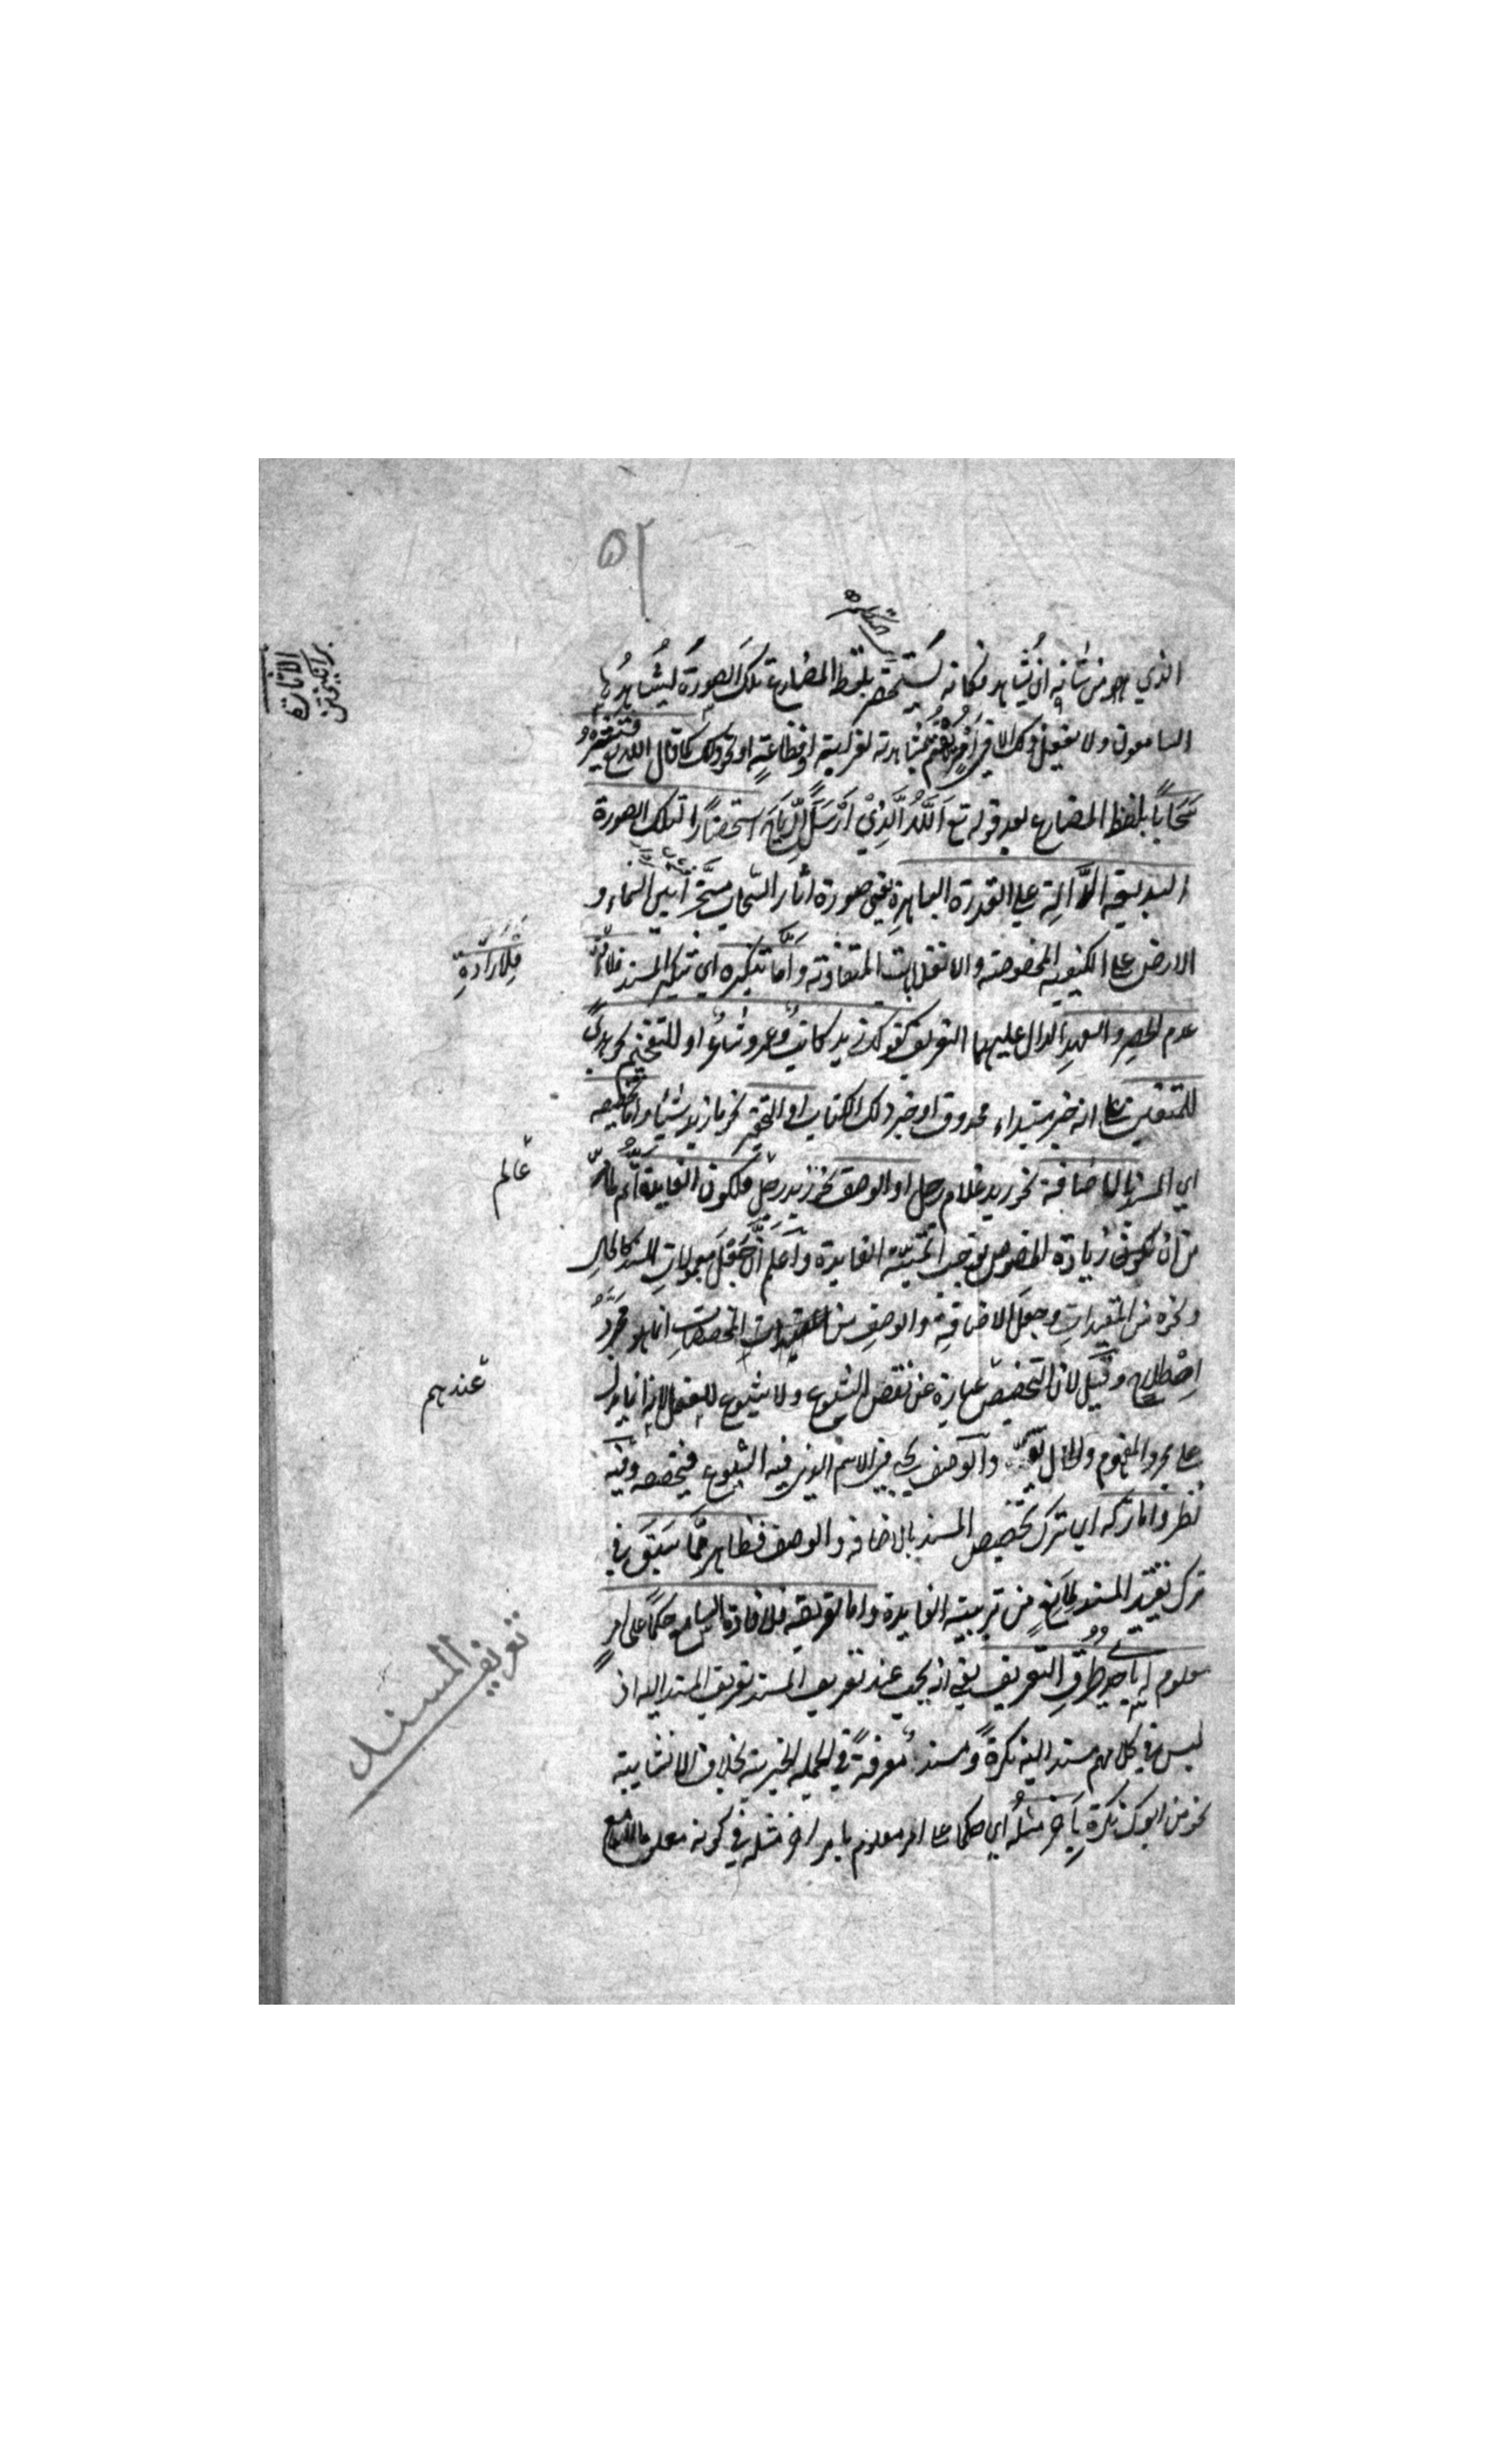 ٥٢
الذي هو من شانه ان يشاهد فكانه يستحضر بلفظ المضارع تلك الصورة ليشاهدها
السامعون ولا يفعل ذلك الا في امر يهتم بمشاهدته لغرابته او فظاعته او نحو ذلك كما قال الله تع فتثير
سحابا بلفظ المضارع بعد قوله تع الله الذي ارسل الرياح استحضارا لتلك الصورة
البديعة الدالة على القدرة الباهرة يعني صورة اثار السحاب مسخرا بين السماء و
الارض على الكيفية المخصوصة والانقلابات المتفاوتة واما تنكيره اي تنكير المسند
فلارادة
عدم الحصر والعهد الدال عليهما التعريف كقولك زيد كاتب وعمرو شاعر او للتفخيم نحو هدى
للمتقين على انه خبر مبتداء محذوف او خبر ذلك الكتاب او التحقير نحو ما زيد شيئا واما تخصيصه
اي المسند بالاضافة نحو زيد غلام رجل او الوصف نحو زيد رجل فلكون الفايدة اتم لما مر
عالم
من ان زيادة الخصوص توجب اتمية الفايدة واعلم ان جعل معمولات المسند كالحال
ونحوه من المقيدات وجعل الاضافة والوصف من المخصصات انما هو مجرد
اصطلاح وقيل لان التخصيص عبارة عن نقص الشيوع ولا شيوع للفعل لانه انما يدل
عندهم
على مجرد المفهوم والحال تقيده والوصف يجيء في الاسم الذي فيه الشيوع فيخصصه وفيه
نظر واما تركه اي ترك تخصيص المسند بالاضافة والوصف فظاهر مما سبق في
ترك تقييد المسند لمانع من تربية الفايدة واما تعريفه فلافادة السامع حكما على امر
تعريف المسند
معلوم له باحدى طرق التعريف يعني انه يجب عند تعريف المسند تعريف المسند اليه اذ
ليس في كلامهم مسند اليه نكرة ومسند معرفة في الجملة الخبرية بخلاف الانشايية
نحو من ابوك نكرة بآخر مثله اي حكما على امر معلوم بامر اخر مثله في كونه معلوما للسامع